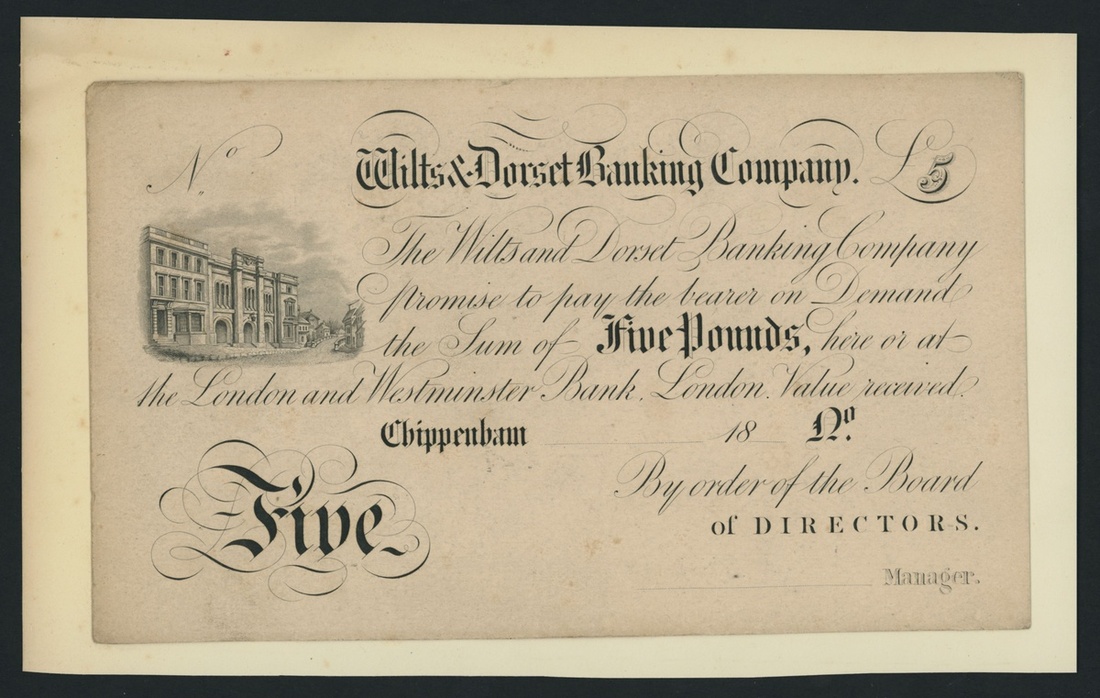 No.
Wilts & Dorset Banking Company. £5
The Wilts and Dorset Banking Company
promise to pay the bearer on Demand
the Sum of Five Pounds, here or at
the London and Westminster Bank, London. Value received.
Chippenham 18 No.
By order of the Board
of DIRECTORS.
Five
Manager.